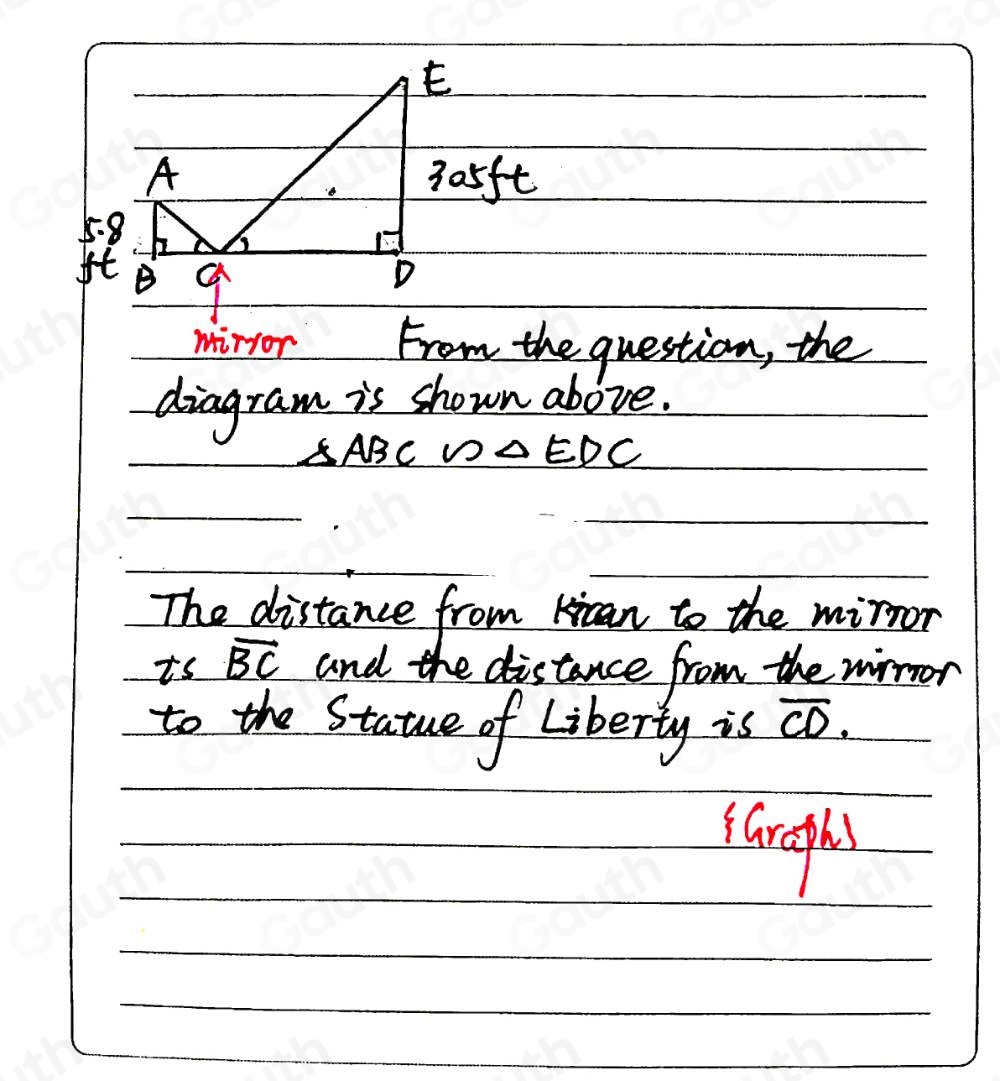 E
A
305ft
5.8
ft
B
C
D
mirror
From the question, the
diagram is shown above.
△ABC ∽ △EDC
The distance from Kiran to the mirror
is BC and the distance from the mirror
to the Statue of Liberty is CD.
{Graph}
Gauth